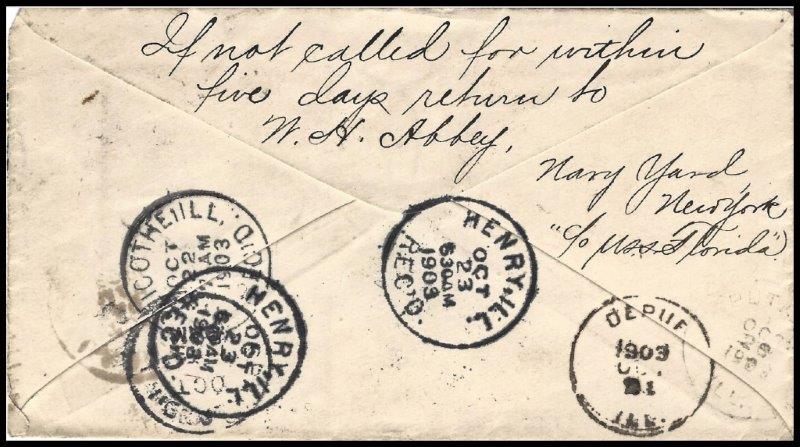 If not called for within
five days return to
W. H. Abbey,
Navy Yard
New York
"c/o U.S.S. Florida"
ICOTHE, ILL,
OCT
22
AM
1903
HENRY, ILL.
OCT
23
630AM
1903
REC'D.
HENRY, ILL.
23
REC'D.
DEPUE
1903
OCT
21
ILL.